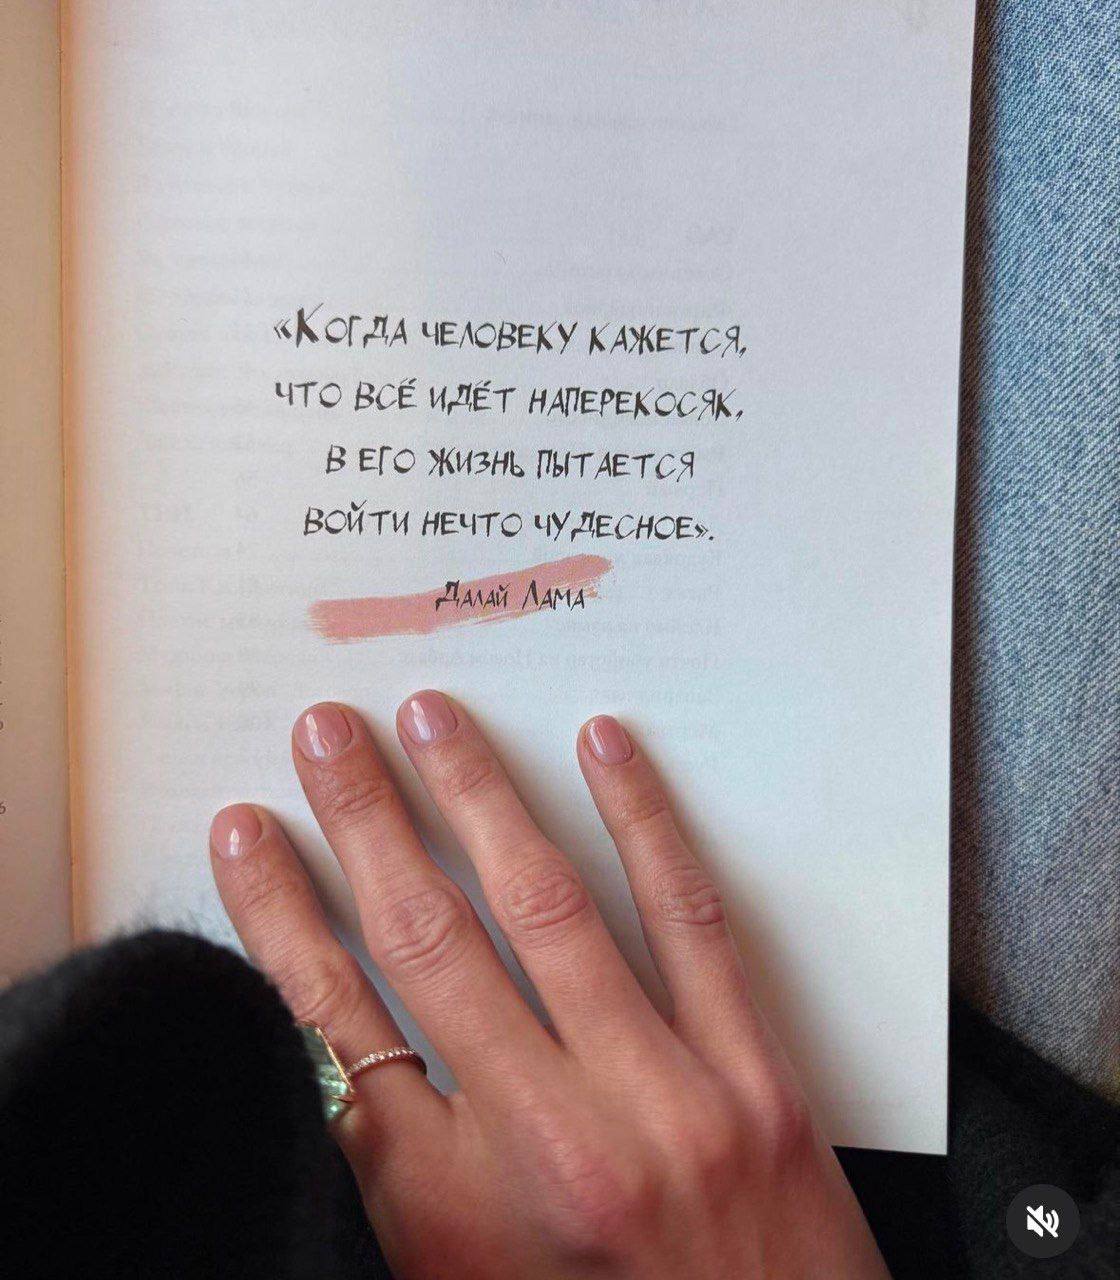 «Когда человеку кажется,
что всё идёт наперекосяк,
в его жизнь пытается
войти нечто чудесное».
Далай Лама
6